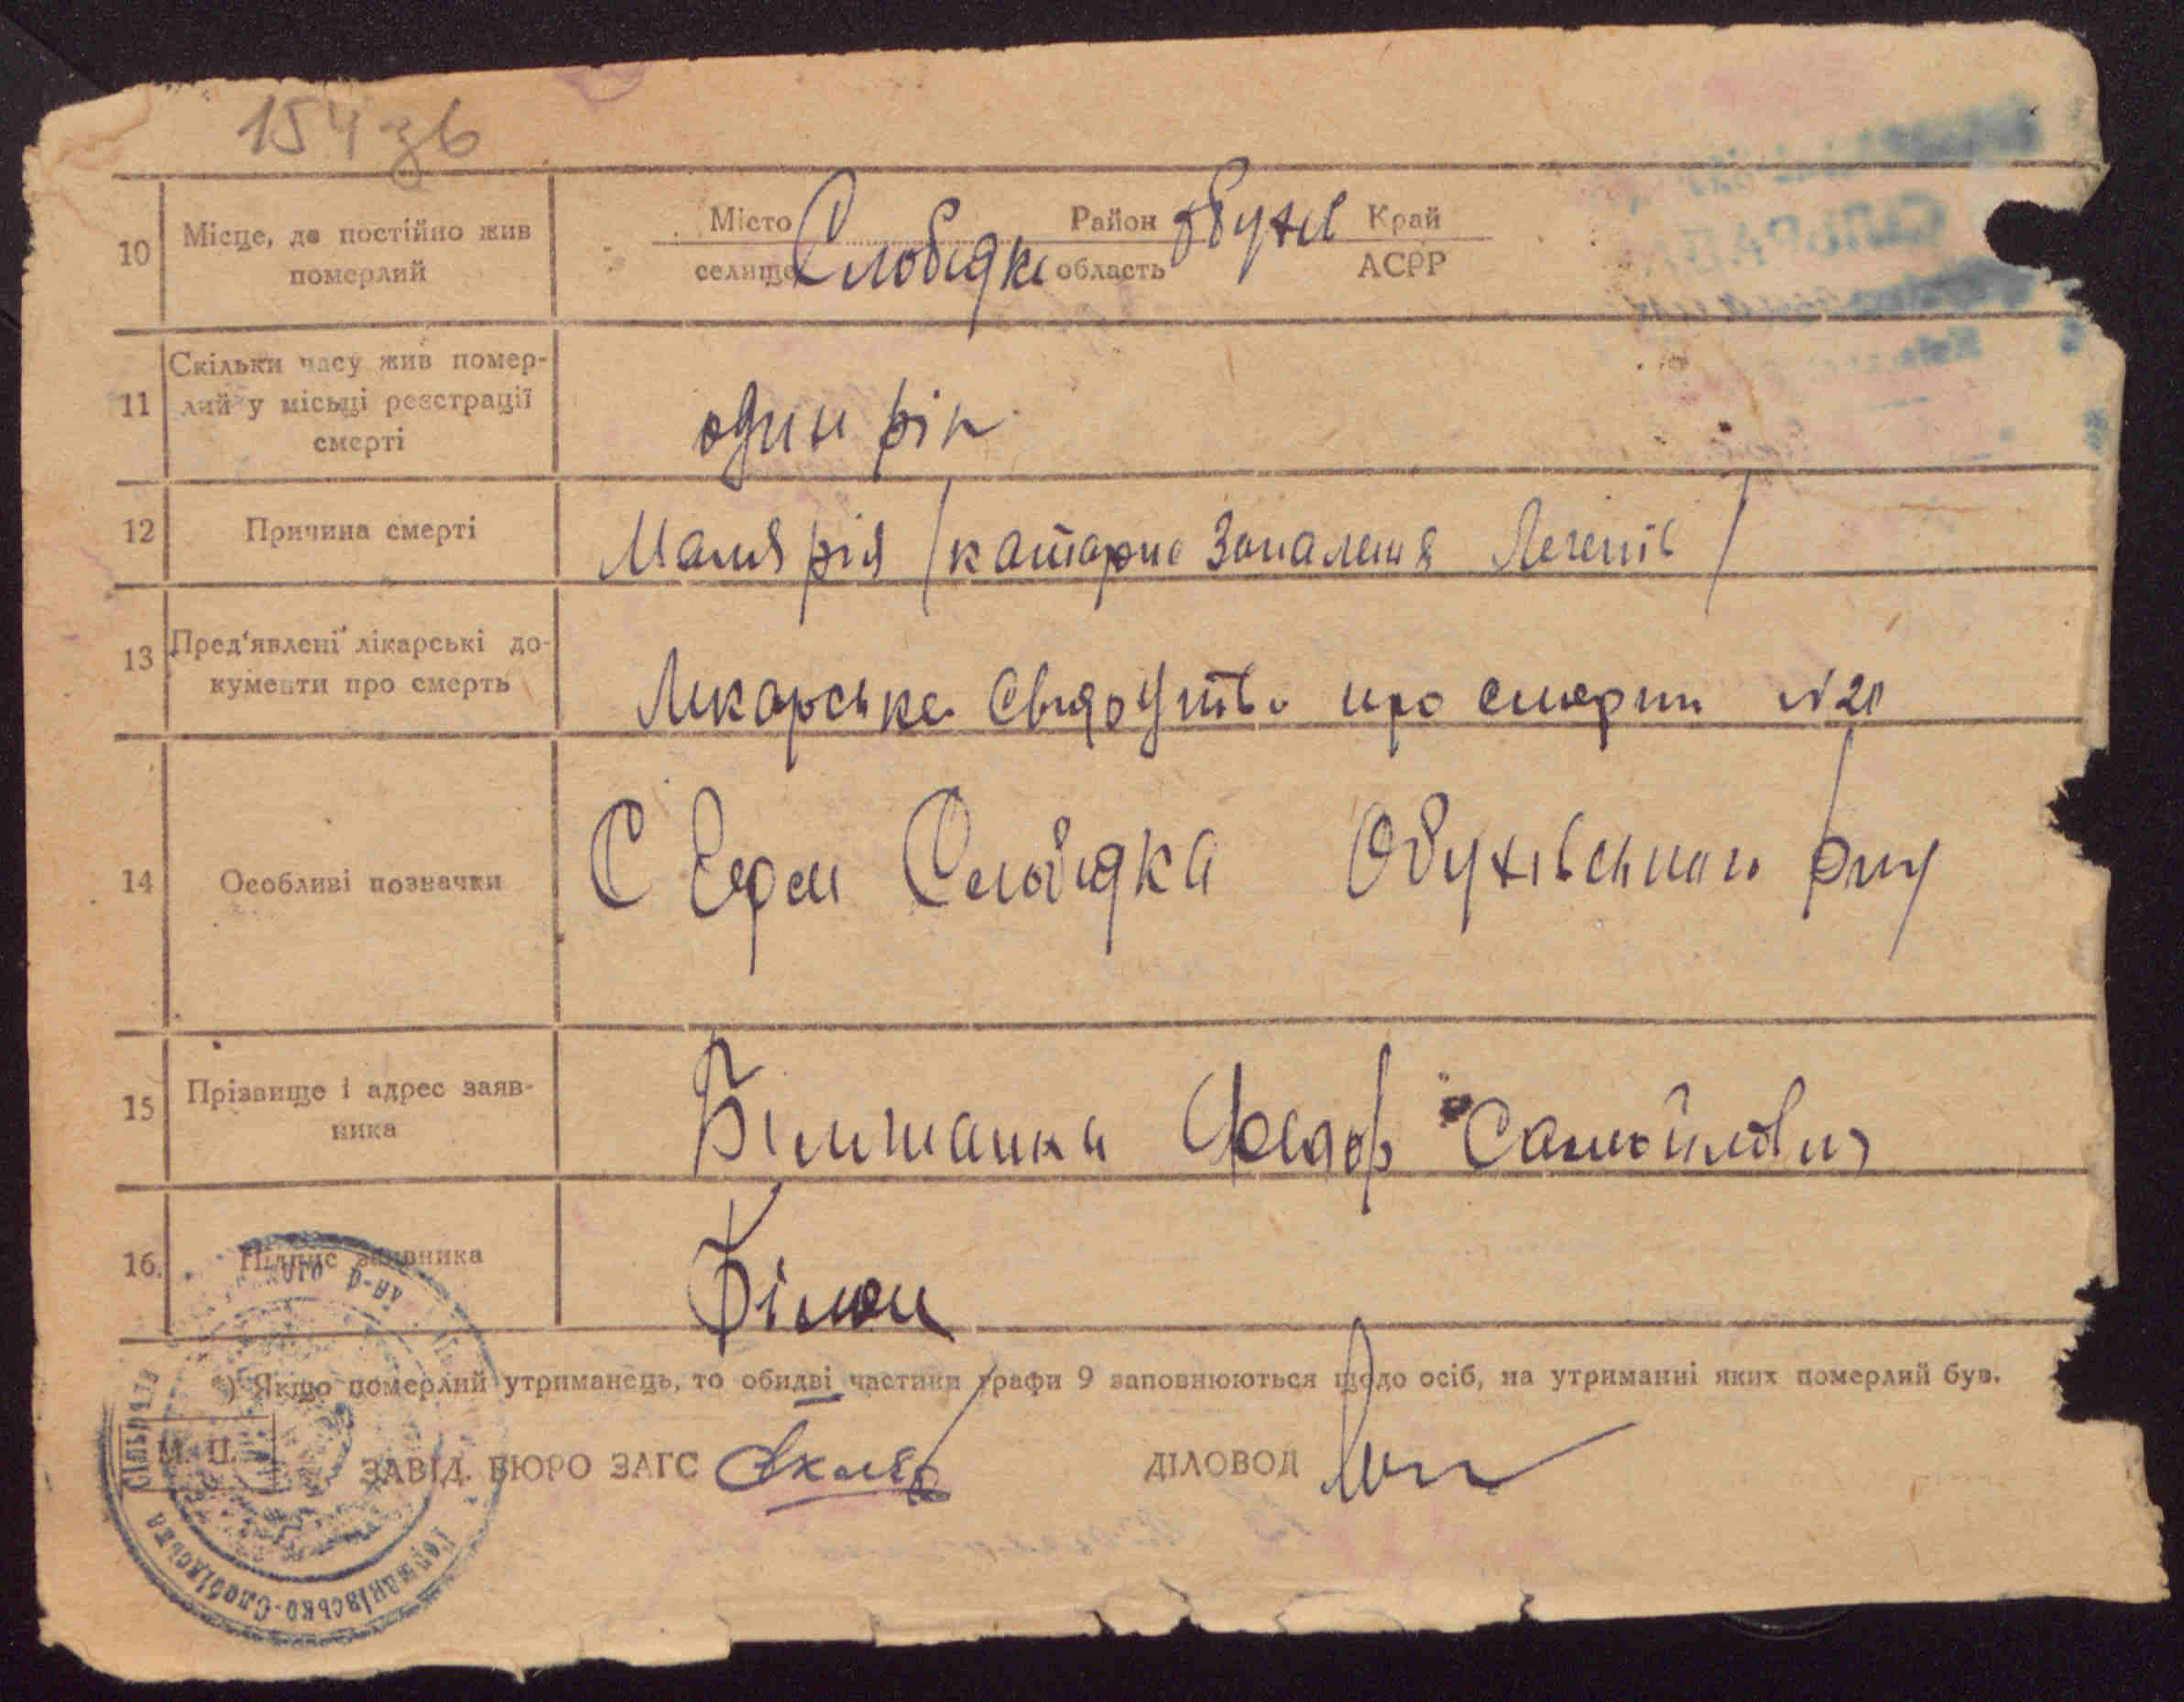 154 зв
10 Місце, де постійно жив померлий
Місто Слобідка Район Обухів Край
селище область АСРР
11 Скільки часу жив помер-
лий у місьці реєстрації
смерті
один рік
12 Причина смерті
Малярія / катарне запалення легенів /
13 Пред'явлені лікарські до-
кументи про смерть
Лікарське про смерть №20
14 Особливі позначки
С Слобідка Обухівського р-ну
15 Прізвище і адрес заяв-
ника
Федор Самойлович
16. Підпис заявника
*) Якщо померлий утриманець, то обидві частини графи 9 заповнюються щодо осіб, на утриманні яких померлий був.
М. П.
ЗАВІД. БЮРО ЗАГС
ДІЛОВОД
СІЛЬРАДА